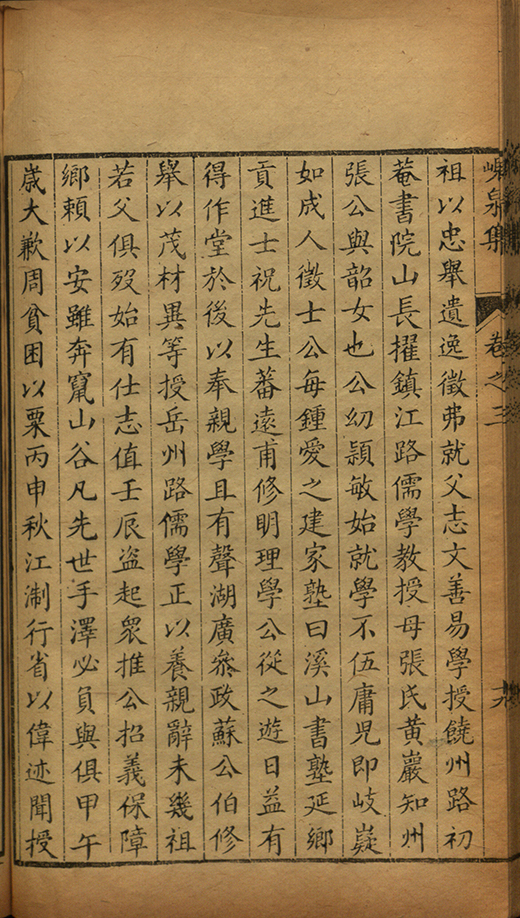 峴泉集 卷之三 十九
祖以忠舉遺逸徵弗就父志文善易學授饒州路初
菴書院山長擢鎮江路儒學教授母張氏黃巖知州
張公與韶女也公幼穎敏始就學不伍庸児即岐嶷
如成人徵士公每鍾愛之建家塾曰溪山書塾延鄉
貢進士祝先生蕃遠甫修明理學公從之遊日益有
得作堂於後以奉親學且有聲湖廣叅政蘇公伯修
舉以茂材異等授岳州路儒學正以養親辭未幾祖
若父俱歿始有仕志值壬辰盗起衆推公招義保障
鄉頼以安雖奔竄山谷凡先世手澤必負與俱甲午
歲大歉周貧困以粟丙申秋江淛行省以偉迹聞授